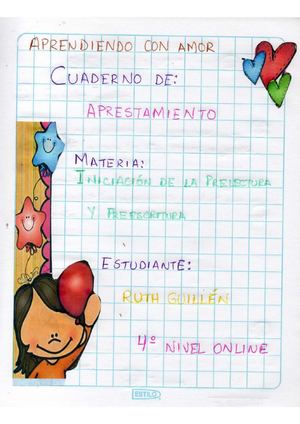 APRENDIENDO CON AMOR
CUADERNO DE:
APRESTAMIENTO
MATERIA:
INICIACIÓN DE LA PRELECTURA
Y PREESCRITURA
ESTUDIANTE:
RUTH GUILLÉN
4º NIVEL ONLINE
ESTILO